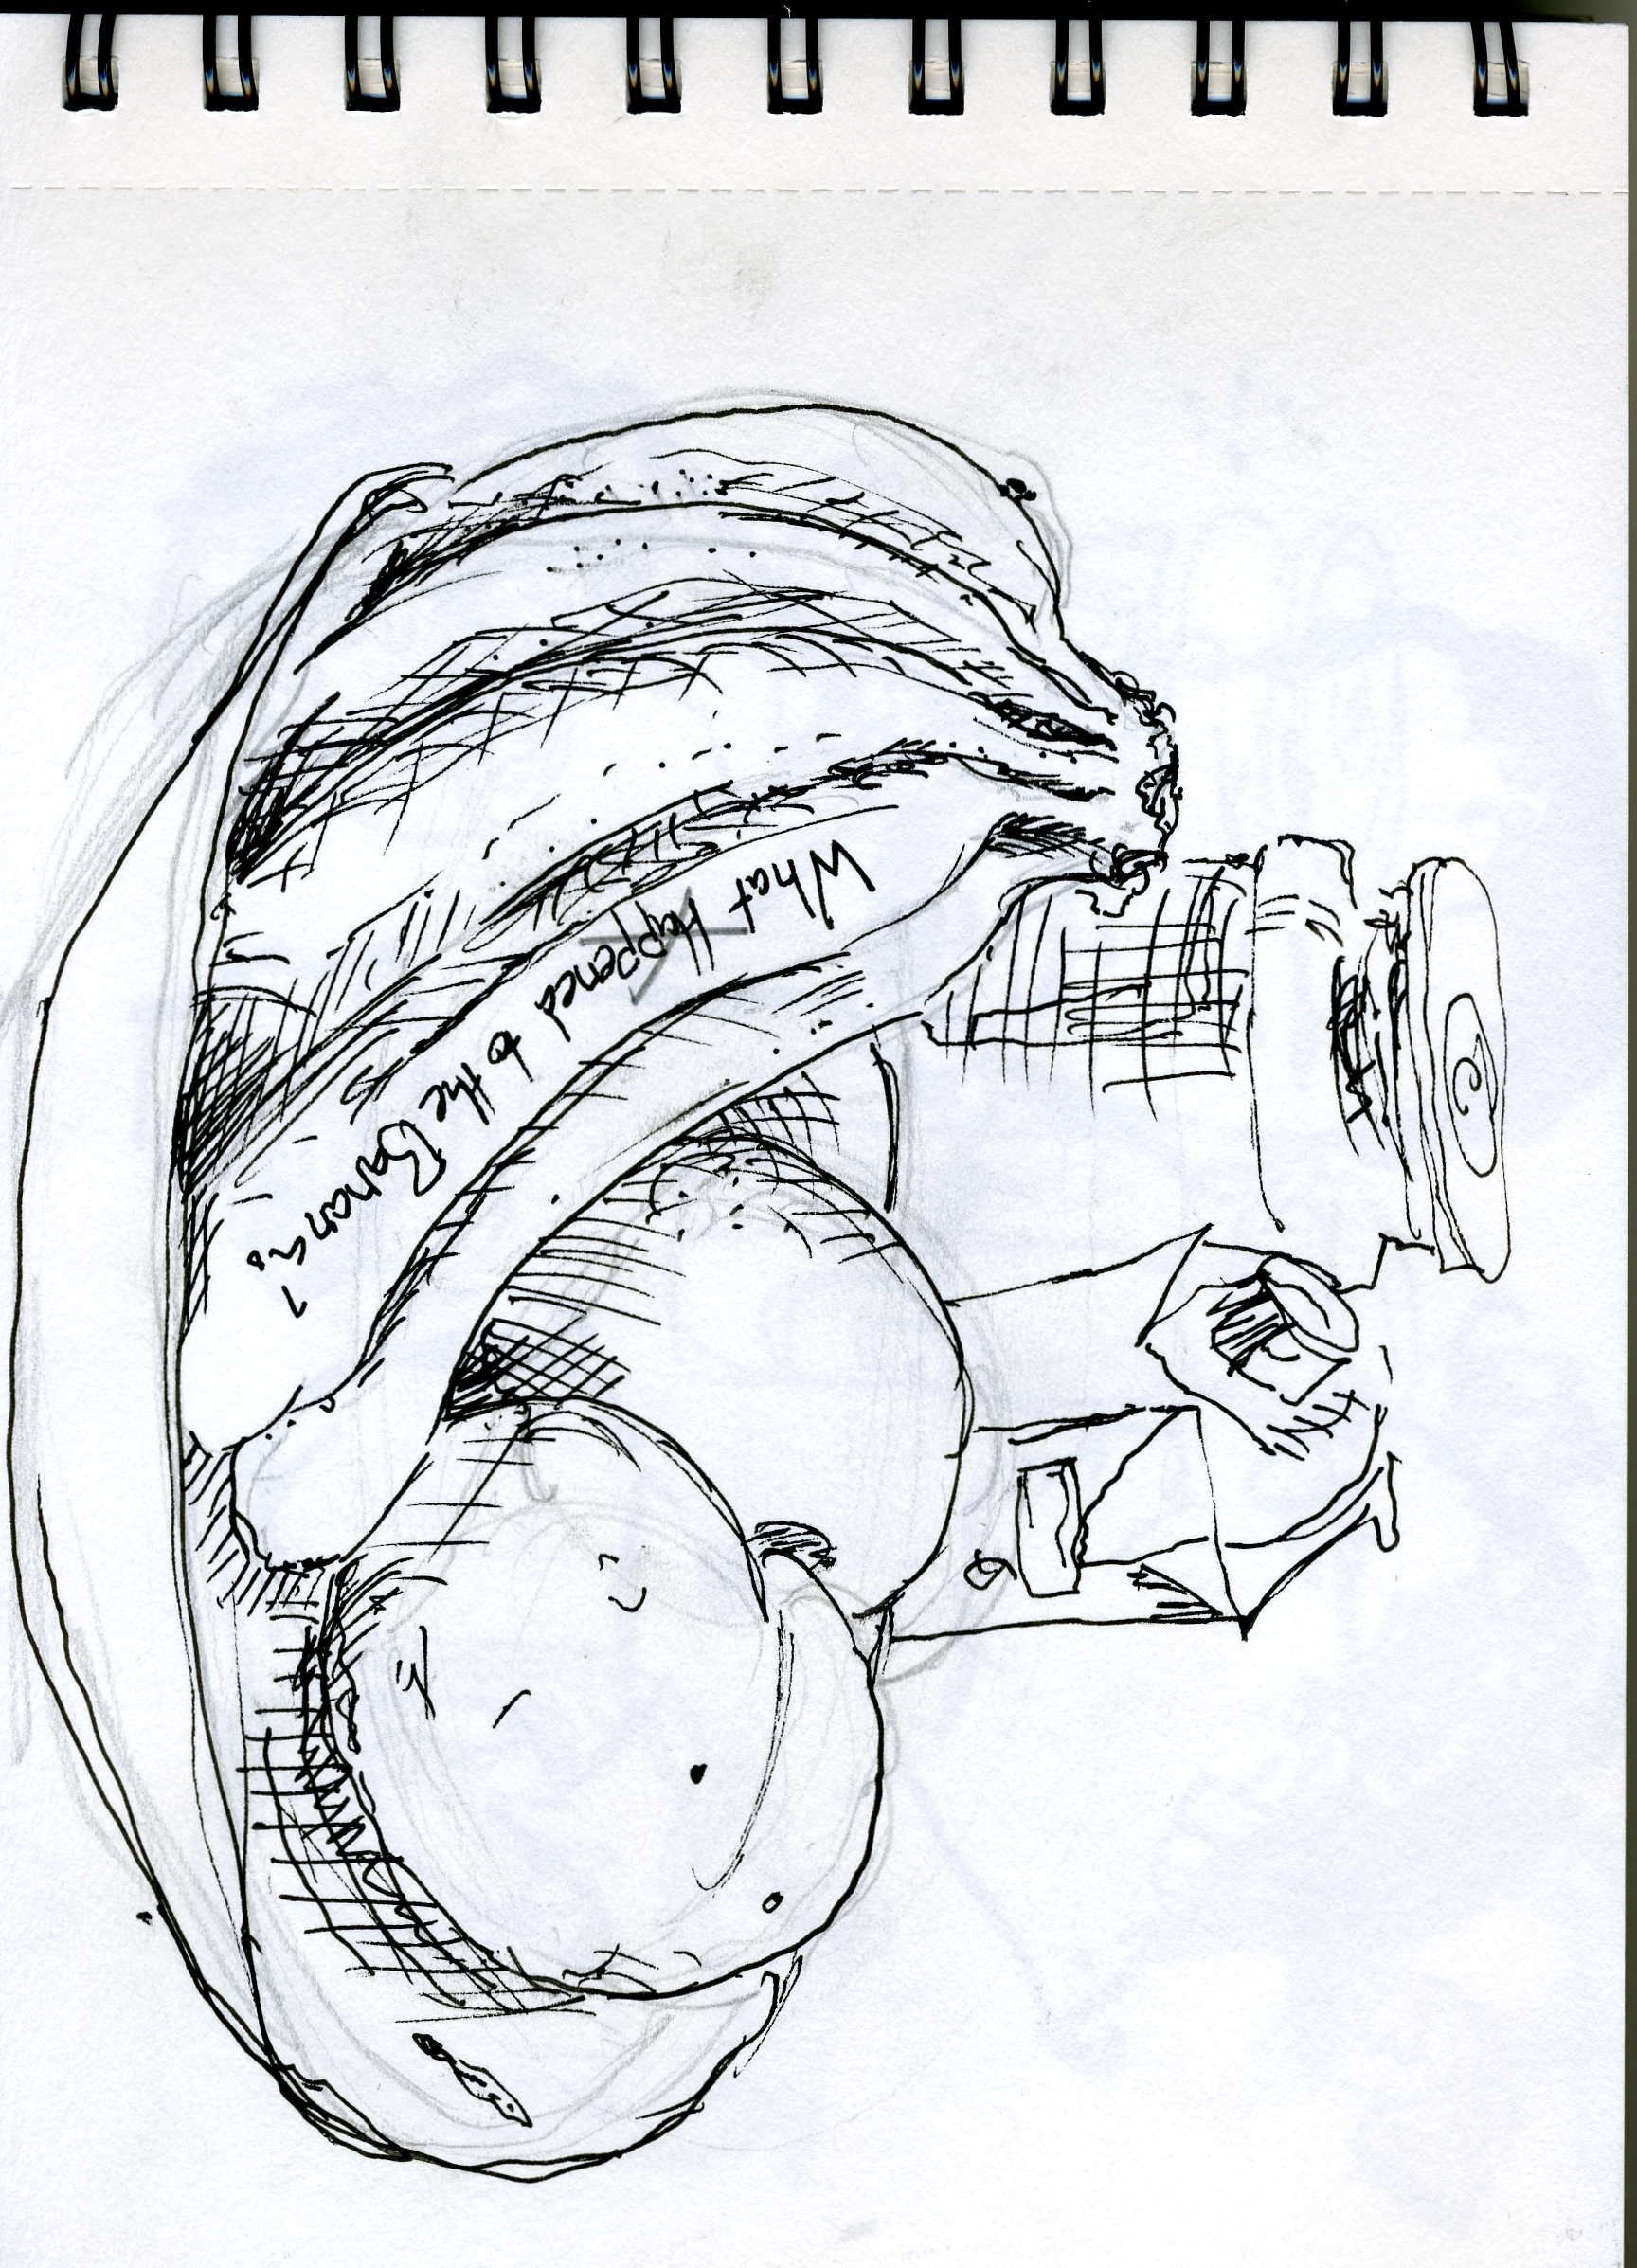 What Happened to the Banana?